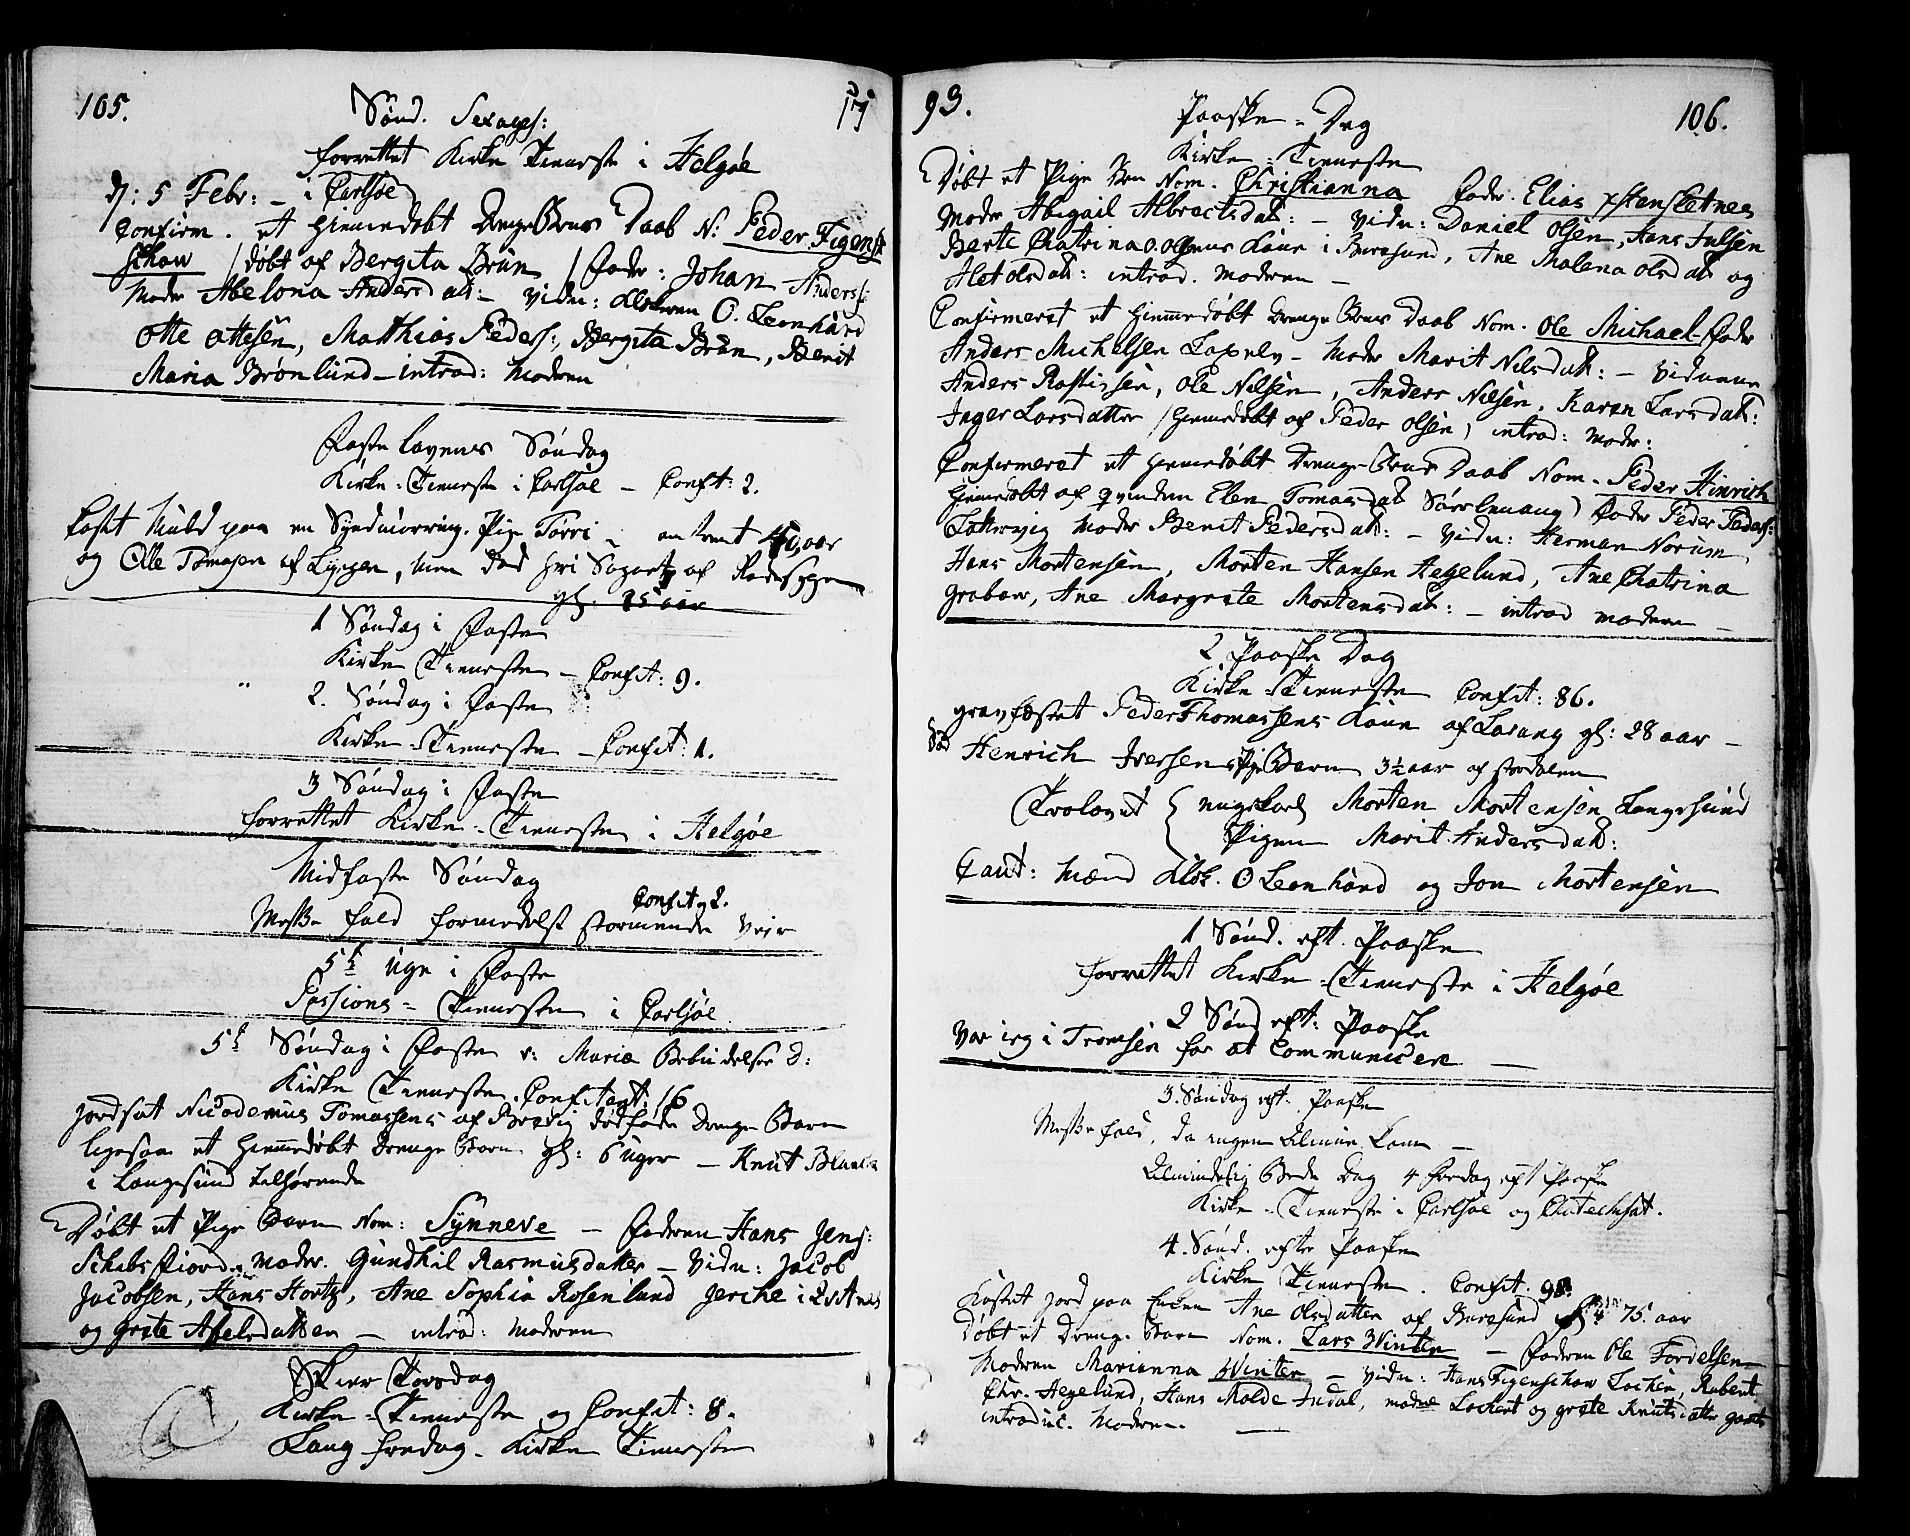 105.
17
Sønd. Sexages:
forrettet Kirke Tieneste i Helgøe
d: 5 Febr: – i Carlsøe
Confirm. et Hiemmedøbt Drenge Barns Daab N: Peder Figen
schow / døbt af Bergita Brun / Fader: Johan Anders
Moder Abelona Andersdat: – Vidn: Klokeren O. Leonhard
Otte Ottesen, Matthias Peders:, Bergita Brun, Berit
Maria Brønlund – introd: Moderen
Fastelavens Søndag
Kirke-Tieneste i Carlsøe – Confit: 2.
Kastet Muld paa en Pige Torri – omtrent 40 aar
og Olle Tomesen af Lyngen, men død
gl: 25 aar
1 Søndag i Faste
Kirke Tieneste – Confit: 9.
2. Søndag i Faste
Kirke-Tieneste – Confit: 1.
3 Søndag i Faste
forrettet Kirke-Tieneste i Helgøe
Midfaste Søndag
Confit: 2.
Messe fald formedelst stormende Veir
5t Uge i Faste
Passions-Tieneste i Carlsøe
5t Søndag i Faste v: Mariæ Bebudelse D:
Kirke Tieneste. Confitent: 16
Jordsat Nicodemus Tomassens af Bredvig dødfødt Drenge Barn
ligesaa et Hiemmedøbt Drenge Barn gl: 6 Uger – Knut
i Langesund tilhørende
Døbt et Pige Barn Nom: Synneve – Faderen Hans Jens:
Skibsfiord, Moder. Gundhil Rasmusdatter – Vidn: Jacob
Jacobsen, Hans Hortz, Ane Sophia Rosenlund
og Grete Axelsdatter – introd: Moderen
Skier Torsdag
Kirke-Tieneste og Confit: 8.
Lang Fredag – Kirke Tieneste
93.
106.
Paaske-Dag
Kirke-Tieneste
Døbt et Pige Barn Nom. Christianna Fader: Elias
Moder Abigail Albrectsdat: – Vidn: Daniel Olsen, Hans Julsen
Berte Chatrina O. Olsens Kone i Buresund, Ane Malena Olsdat og
Alet Olsdat: introd. Moderen –
Confirmeret et Hiemmedøbt Drenge Barns Daab Nom. Ole Michael Fader
Anders Michelsen – Moder Marit Nilsdat: – Vidnerne
Anders Rastissen, Ole Nilsen, Anders Nilsen, Karen Larsdat:
Inger Larsdatter / Hiemmedøbt af Peder Olsen) introd: Moder:
Confirmeret et Hiemmedøbt Drenge Barns Daab Nom. Peder Hinrich
Hiemmedøbt af qvinden Elen Tomasdat ) Fader Peder Peders:
Moder Berit Pedersdat: – Vidn: Herman Norum
Hans Mortensen, Morten Hansen Hegelund, Ane Chatrina
Grabow, Ane Margrete Mortensdat: – introd Moderen –
2 Paaske Dag
Kirke-Tieneste Confit: 86.
gravfæstet Peder Thomassens Kone af gl: 28 aar –
Henrich Iversens Pige Barn 3½ aar af Stordalen
Trolovet { ungekarl Morten Mortensen Langesund
Pigen Marit Andersdat:
Caut: Mænd Klok. O Leonhard og Jon Mortensen
1 Sønd. eft. Paaske
forrettet Kirke-Tieneste i Helgøe
2 Sønd eft: Paaske
Var jeg i Tromsen for at Communicere –
3. Søndag eft: Paaske
Messe fald, da ingen Almue kom –
Almindelig Bede Dag 4 Fredag eft Paaske
Kirke-Tieneste i Carlsøe og Chatechisat.
4. Sønd. efter Paaske
Kirke Tieneste. Confit: 98.
Kastet Jord paa Enken Ane Olsdatter af Buresund 75 aar
Døbt et Drenge-Barn Nom. Lars Winter – Faderen Ole Fordelsen
Moderen Marianna Winter – Vidn: Hans Figenschow Lochert, Rubert
Chr. Hegelund, Hans Molde Lochert og Grete Knutsdatter
introduc. Moderen. –